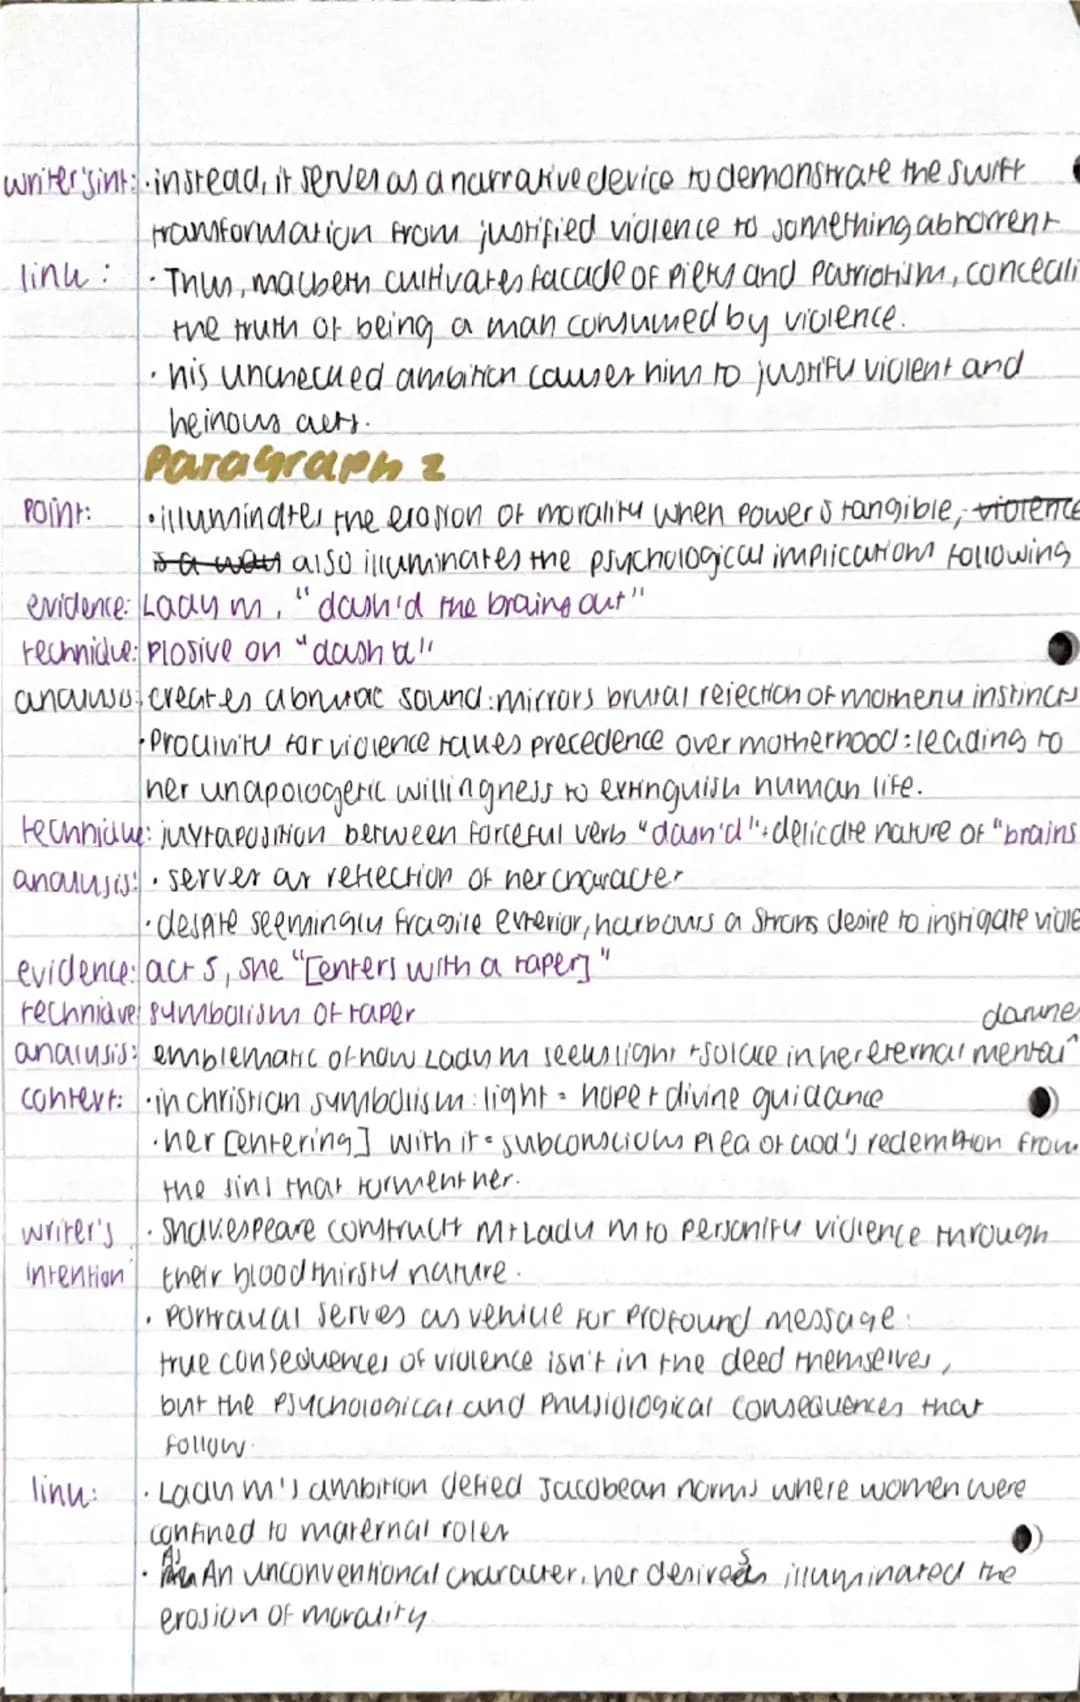 writer's int: · instead, it serves as a narrative device to demonstrate the swift
transformation from justified violence to something abhorrent
link: · Thus, macbeth cultivates facade of piety and patriotism, conceali
the truth of being a man consumed by violence.
· his unchecked ambition causes him to justify violent and
heinous acts.
Paragraph 2
point: · illuminates the erosion of morality when power is tangible, violence
is a way also illuminates the psychological implications following
evidence: Lady m, "dash'd the brains out"
technique: plosive on "dash'd"
analysis: creates abrupt sound: mirrors brutal rejection of motherly instincts
· Proclivity for violence takes precedence over motherhood: leading to
her unapologetic willingness to extinguish human life.
technique: juxtaposition between forceful verb "dash'd" + delicate nature of "brains
analysis: · serves as reflection of her character
· despite seemingly fragile exterior, harbours a strong desire to instigate viole
evidence: act 5, she "[enters with a taper]"
technique: symbolism of taper
darkne
analysis: emblematic of how Lady m seeks light + solace in her eternal mental ^
context: · in christian symbolism: light = hope + divine guidance
· her [entering] with it = subconscious plea of God's redemption from
the sins that torment her.
writer's · Shakespeare constructs M + Lady m to personify violence through
intention their bloodthirsty nature.
· portrayal serves as vehicle for profound message:
true consequences of violence isn't in the deed themselves,
but the psychological and physiological consequences that
follow.
link: · Lady m's ambition defied Jacobean norms where women were
confined to maternal roles
· As An unconventional character, her desires illuminated the
erosion of morality